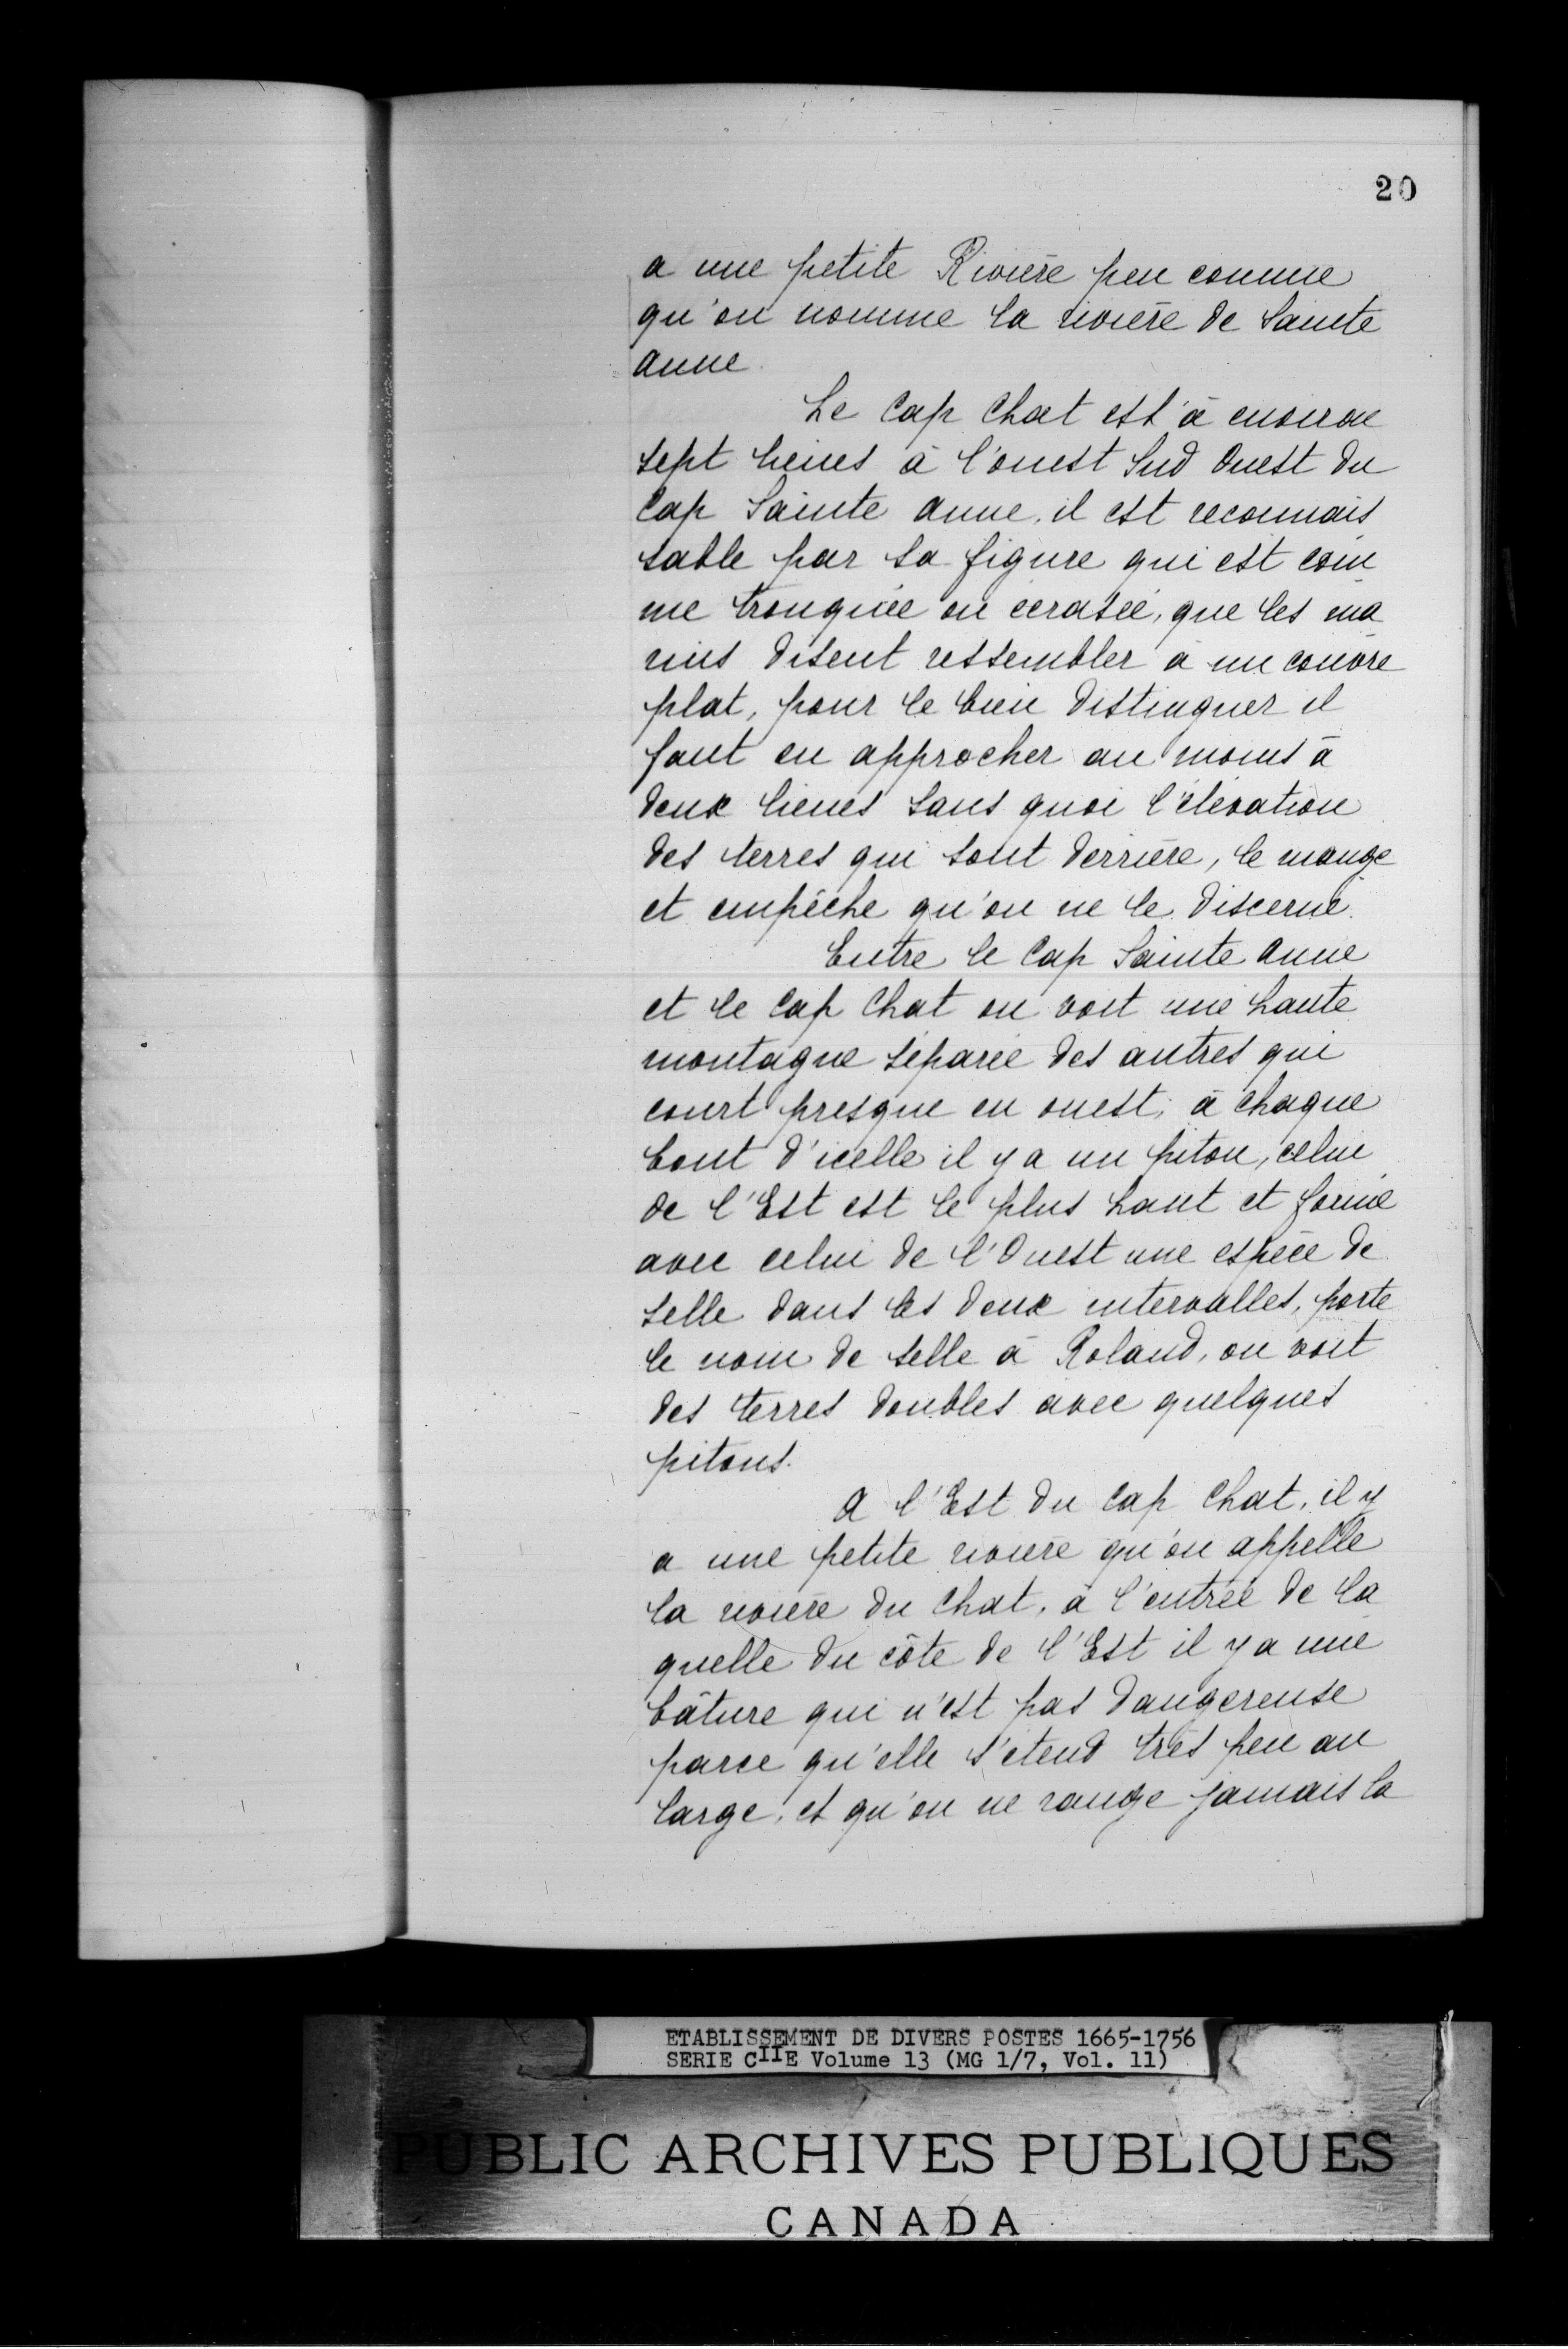 20
a une petite Rivière peu connue
qu'on nomme la rivière de Sainte
Anne.
Le Cap Chat est à environ
sept lieues à l'ouest Sud Ouest du
Cap Sainte Anne, il est reconnais
sable par sa figure qui est com
me tronquée ou écrasée, que les ma
rins disent ressembler à un couvre
plat, pour le bien distinguer il
faut en approcher au moins à
deux lieues sans quoi l'élévation
des terres qui sont derrière, le mange
et empêche qu'on ne le discerne.
Entre le Cap Sainte Anne
et le Cap Chat on voit une haute
montagne séparée des autres qui
court presque en ouest; à chaque
bout d'icelle il y a un piton, celui
de l'Est est le plus haut et forme
avec celui de l'Ouest une espèce de
selle dans les deux intervalles, porte
le nom de selle à Roland, on voit
des terres doubles avec quelques
pitons.
A l'Est du Cap Chat, il y
a une petite rivière qu'on appelle
la rivière du Chat, à l'entrée de la
quelle du côte de l'Est il y a une
bâture qui n'est pas dangereuse
parce qu'elle s'étend très peu au
large, et qu'on ne range jamais la
ETABLISSEMENT DE DIVERS POSTES 1665-1756
SERIE CIIE Volume 13 (MG 1/7, Vol. 11)
PUBLIC ARCHIVES PUBLIQUES
CANADA